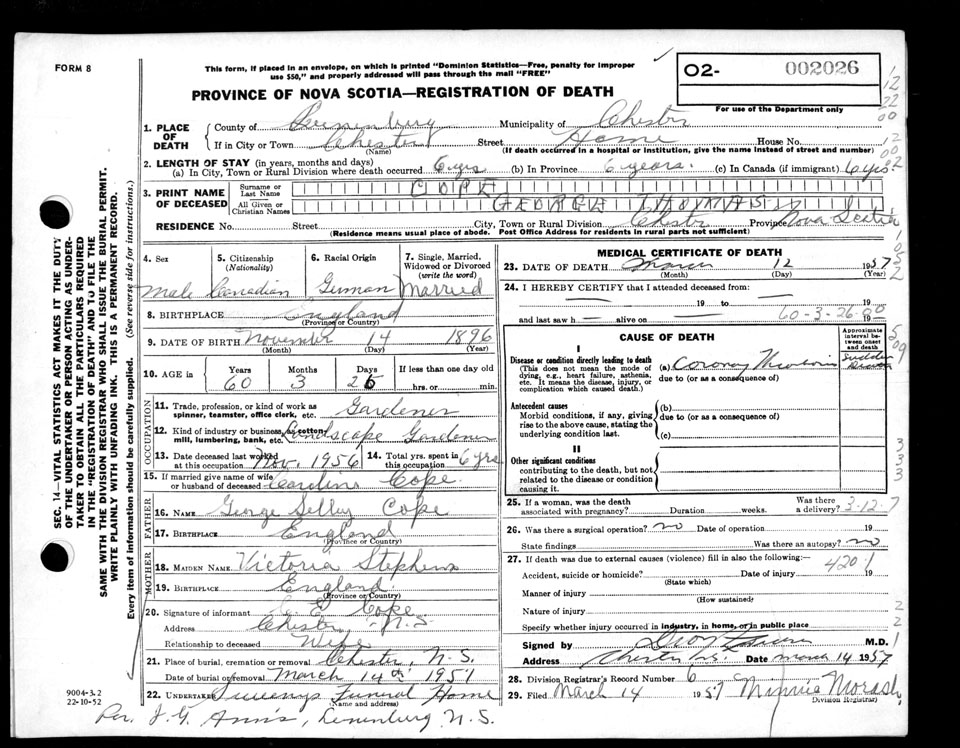 FORM 8
This form, if placed in an envelope, on which is printed "Dominion Statistics—Free, penalty for improper
use $50," and properly addressed will pass through the mail "FREE"
PROVINCE OF NOVA SCOTIA—REGISTRATION OF DEATH
O2- 002026
For use of the Department only
1. PLACE OF DEATH
County of Lunenburg Municipality of Chester
If in City or Town Chester Street Home House No.
(Name) (If death occurred in a hospital or institution, give the name instead of street and number)
2. LENGTH OF STAY (in years, months and days)
(a) In City, Town or Rural Division where death occurred 6 yrs (b) In Province 6 years. (c) In Canada (if immigrant) 6 yrs
3. PRINT NAME OF DECEASED
Surname or Last Name COPE
All Given or Christian Names GEORGE THOMAS
RESIDENCE No. Street City, Town or Rural Division Chester Province Nova Scotia
(Residence means usual place of abode. Post Office Address for residents in rural parts not sufficient)
4. Sex 5. Citizenship (Nationality) 6. Racial Origin 7. Single, Married, Widowed or Divorced (write the word)
Male Canadian German Married
8. BIRTHPLACE England
(Province or Country)
9. DATE OF BIRTH November 14 1896
(Month) (Day) (Year)
10. AGE in Years Months Days If less than one day old
60 3 26 hrs. or min.
OCCUPATION
11. Trade, profession, or kind of work as spinner, teamster, office clerk, etc. Gardener
12. Kind of industry or business, as cotton mill, lumbering, bank, etc. Landscape Gardener
13. Date deceased last worked at this occupation Nov. 1956 14. Total yrs. spent in this occupation 6 yrs
15. If married give name of wife or husband of deceased Cope
FATHER
16. NAME George Selby Cope
17. BIRTHPLACE England
(Province or Country)
MOTHER
18. MAIDEN NAME Victoria Stephens
19. BIRTHPLACE England
(Province or Country)
20. Signature of informant E Cope
Address Chester, N.S
Relationship to deceased Wife
21. Place of burial, cremation or removal Chester, N.S.
Date of burial or removal March 14th 1957
22. UNDERTAKER Sweenys Funeral Home
(Name and address)
Per. J.G. Lunenburg N.S.
9004-3.2
22-10-52
MEDICAL CERTIFICATE OF DEATH
23. DATE OF DEATH March 12 1957
(Month) (Day) (Year)
24. I HEREBY CERTIFY that I attended deceased from:
19 to 19
and last saw h alive on 19
60-3-26-00
CAUSE OF DEATH
Approximate interval between onset and death
I
Disease or condition directly leading to death
(This does not mean the mode of dying, e.g., heart failure, asthenia, etc. It means the disease, injury, or complication which caused death.)
(a) Coronary Sudden
due to (or as a consequence of)
Antecedent causes
Morbid conditions, if any, giving rise to the above cause, stating the underlying condition last.
(b)
due to (or as a consequence of)
(c)
II
Other significant conditions
contributing to the death, but not related to the disease or condition causing it.
25. If a woman, was the death associated with pregnancy? Duration weeks. Was there a delivery? 3-12-7
26. Was there a surgical operation? no Date of operation 19
State findings Was there an autopsy? no
27. If death was due to external causes (violence) fill in also the following:—
420.1
Accident, suicide or homicide? Date of injury 19
(State which)
Manner of injury
(How sustained)
Nature of injury
Specify whether injury occurred in industry, in home, or in public place
Signed by M.D.
Address Chester N.S. Date March 14 1957
28. Division Registrar's Record Number 6
29. Filed March 14 1957 Minnie Morash
(Division Registrar)
SEC. 14—VITAL STATISTICS ACT MAKES IT THE DUTY
OF THE UNDERTAKER OR PERSON ACTING AS UNDER-
TAKER TO OBTAIN ALL THE PARTICULARS REQUIRED
IN THE "REGISTRATION OF DEATH" AND TO FILE THE
SAME WITH THE DIVISION REGISTRAR WHO SHALL ISSUE THE BURIAL PERMIT.
WRITE PLAINLY WITH UNFADING INK. THIS IS A PERMANENT RECORD.
Every item of information should be carefully supplied. (See reverse side for instructions.)